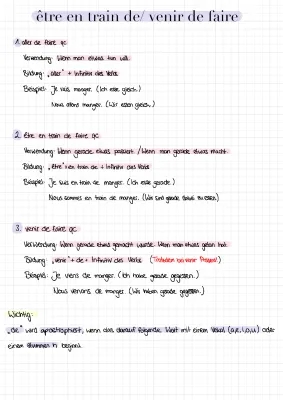 être en train de/ venir de faire
1. aller de faire qc
Verwendung: Wenn man etwas tun will.
Bildung: „aller" + Infinitiv des Verbs
Beispiel: Je vais manger. (Ich esse gleich.)
Nous allons manger. (Wir essen gleich.)
2. être en train de faire qc
Verwendung: Wenn gerade etwas passiert / Wenn man gerade etwas macht.
Bildung: „être" + en train de + Infinitiv des Verbs
Beispiel: Je suis en train de manger. (Ich esse gerade.)
Nous sommes en train de manger. (Wir sind gerade dabei zu essen)
3. venir de faire qc
Verwendung: Wenn gerade etwas gemacht wurde. Wenn man etwas getan hat.
Bildung: „venir" + de + Infinitiv des Verbs
Beispiel: Je viens de manger. (Ich habe gerade gegessen.)
Nous venons de manger. (Wir haben gerade gegessen.)
Wichtig:
„de" wird apostrophiert, wenn das darauf folgende Wort mit einem Vokal (a,e,i,o,u) oder
einem stummen h beginnt.